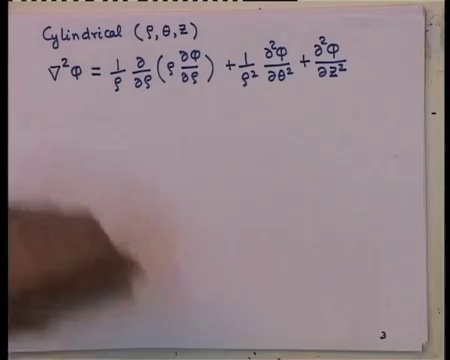 Cylindrical (ρ, θ, z)
∇²φ = 1/ρ ∂/∂ρ (ρ ∂φ/∂ρ) + 1/ρ² ∂²φ/∂θ² + ∂²φ/∂z²
3